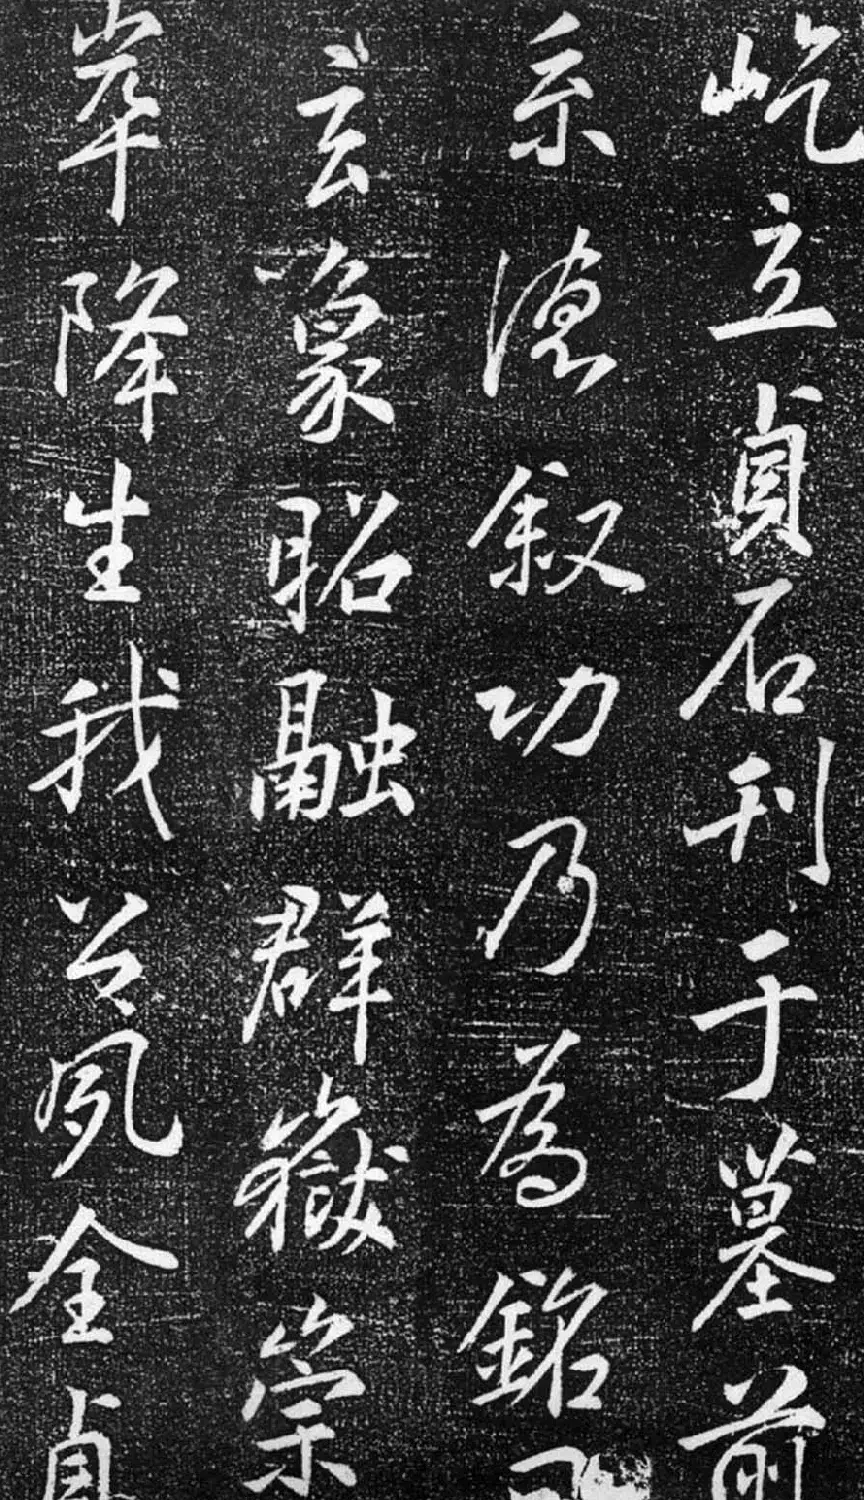 屹立貞石刊于墓前
系德叙功乃為銘曰
玄象昭融群嶽崇
崒降生我公夙全貞